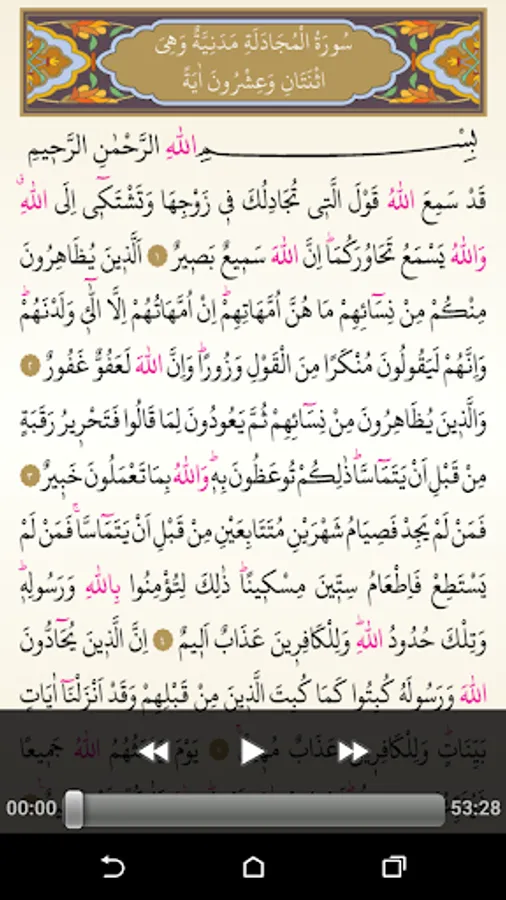 سُورَةُ الْمُجَادَلَةِ مَدَنِيَّةٌ وَهِيَ
اثْنَتَانِ وَعِشْرُونَ اٰيَةً
بِسْمِ اللهِ الرَّحْمٰنِ الرَّح۪يمِ
قَدْ سَمِعَ اللهُ قَوْلَ الَّت۪ي تُجَادِلُكَ ف۪ي زَوْجِهَا وَتَشْتَك۪ٓي اِلَى اللهِۗ
وَاللهُ يَسْمَعُ تَحَاوُرَكُمَاۜ اِنَّ اللهَ سَم۪يعٌ بَص۪يرٌ ﴿١﴾ اَلَّذ۪ينَ يُظَاهِرُونَ
مِنْكُمْ مِنْ نِسَٓائِهِمْ مَا هُنَّ اُمَّهَاتِهِمْۜ اِنْ اُمَّهَاتُهُمْ اِلَّا الّٰٓـ۪ٔي وَلَدْنَهُمْۜ
وَاِنَّهُمْ لَيَقُولُونَ مُنْكَرًا مِنَ الْقَوْلِ وَزُورًاۜ وَاِنَّ اللهَ لَعَفُوٌّ غَفُورٌ ﴿٢﴾
وَالَّذ۪ينَ يُظَاهِرُونَ مِنْ نِسَٓائِهِمْ ثُمَّ يَعُودُونَ لِمَا قَالُوا فَتَحْر۪يرُ رَقَبَةٍ
مِنْ قَبْلِ اَنْ يَتَمَٓاسَّاۜ ذٰلِكُمْ تُوعَظُونَ بِه۪ۜ وَاللهُ بِمَا تَعْمَلُونَ خَب۪يرٌ ﴿٣﴾
فَمَنْ لَمْ يَجِدْ فَصِيَامُ شَهْرَيْنِ مُتَتَابِعَيْنِ مِنْ قَبْلِ اَنْ يَتَمَٓاسَّاۚ فَمَنْ لَمْ
يَسْتَطِعْ فَاِطْعَامُ سِتّ۪ينَ مِسْك۪ينًاۜ ذٰلِكَ لِتُؤْمِنُوا بِاللهِ وَرَسُولِه۪ۜ
وَتِلْكَ حُدُودُ اللهِۜ وَلِلْكَافِر۪ينَ عَذَابٌ اَل۪يمٌ ﴿٤﴾ اِنَّ الَّذ۪ينَ يُحَٓادُّونَ
اللهَ وَرَسُولَهُ كُبِتُوا كَمَا كُبِتَ الَّذ۪ينَ مِنْ قَبْلِهِمْ وَقَدْ اَنْزَلْنَٓا اٰيَاتٍ
بَيِّنَاتٍۜ وَلِلْكَافِر۪ينَ عَذَابٌ مُه۪ينٌ يَوْمَ يَبْعَثُهُمُ اللهُ جَم۪يعًا
00:00 53:28